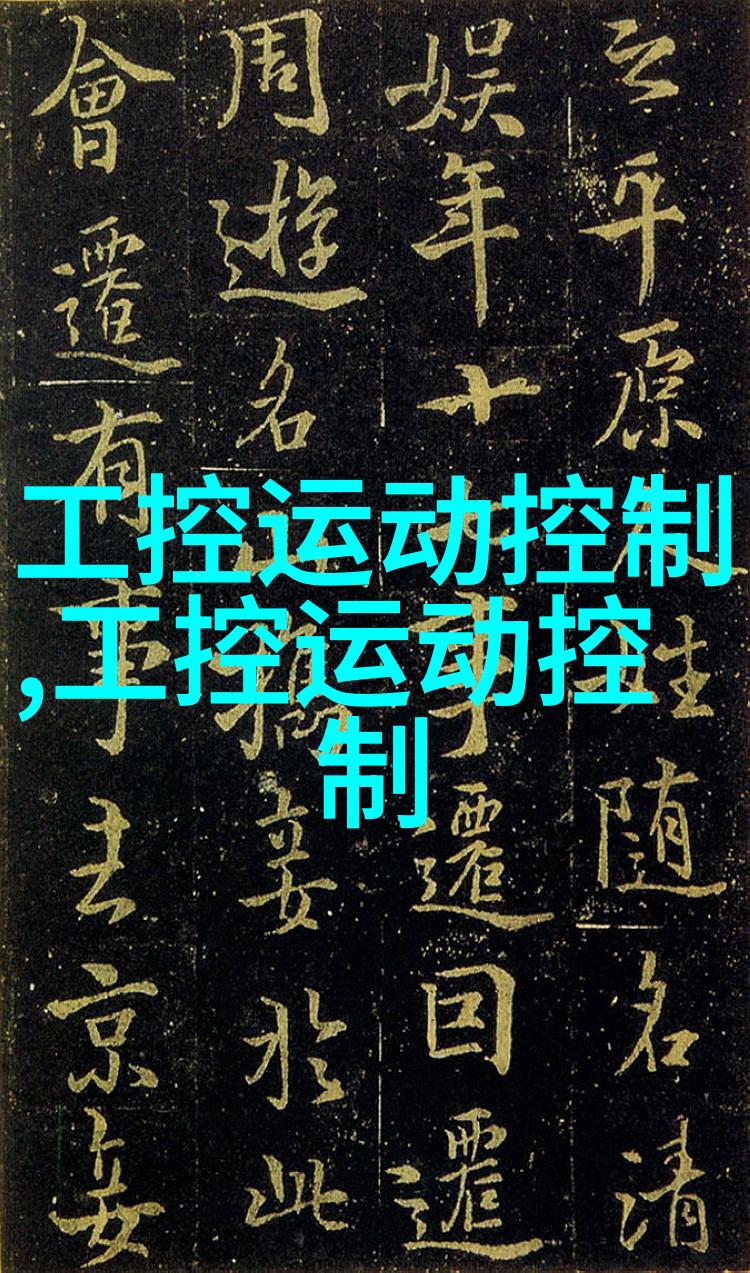 之平原人姓随名清
娱年十七事遷因遷
周遊名山攜妾於此
會遷有事去京妾
工控运动控制
,工控运动控
制